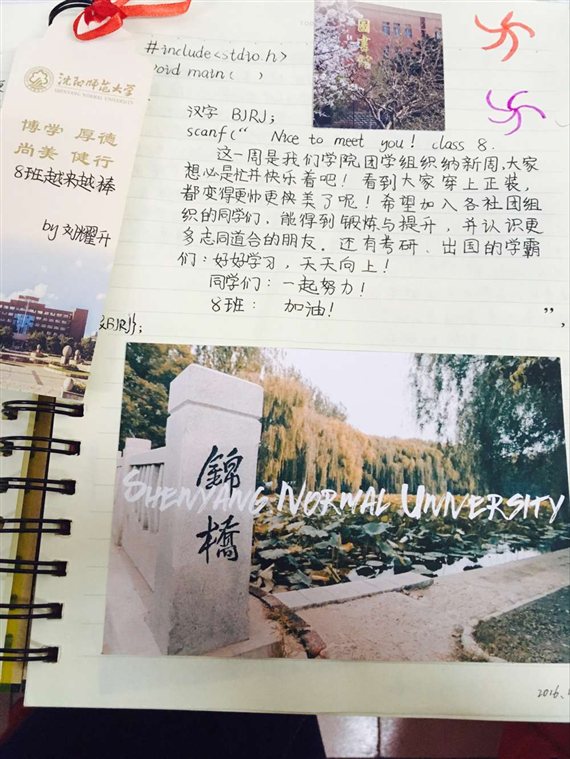 沈阳师范大学
SHENYANG NORMAL UNIVERSITY
博学 厚德
尚美 健行
8班越来越棒
by 刘耀升
圖書館
#include<stdio.h>
void main( )
汉字 BJRJ;
scanf(“ Nice to meet you! class 8.
这一周是我们学院团学组织纳新周,大家
想必是忙并快乐着吧!看到大家穿上正装,
都变得更帅更美了呢!希望加入各社团组
织的同学们,能得到锻炼与提升,并认识更
多志同道合的朋友。还有考研、出国的学霸
们:好好学习,天天向上!
同学们:一起努力!
8班: 加油!
”,
BJRJ);
錦橋
SHENYANG NORMAL UNIVERSITY
2016.